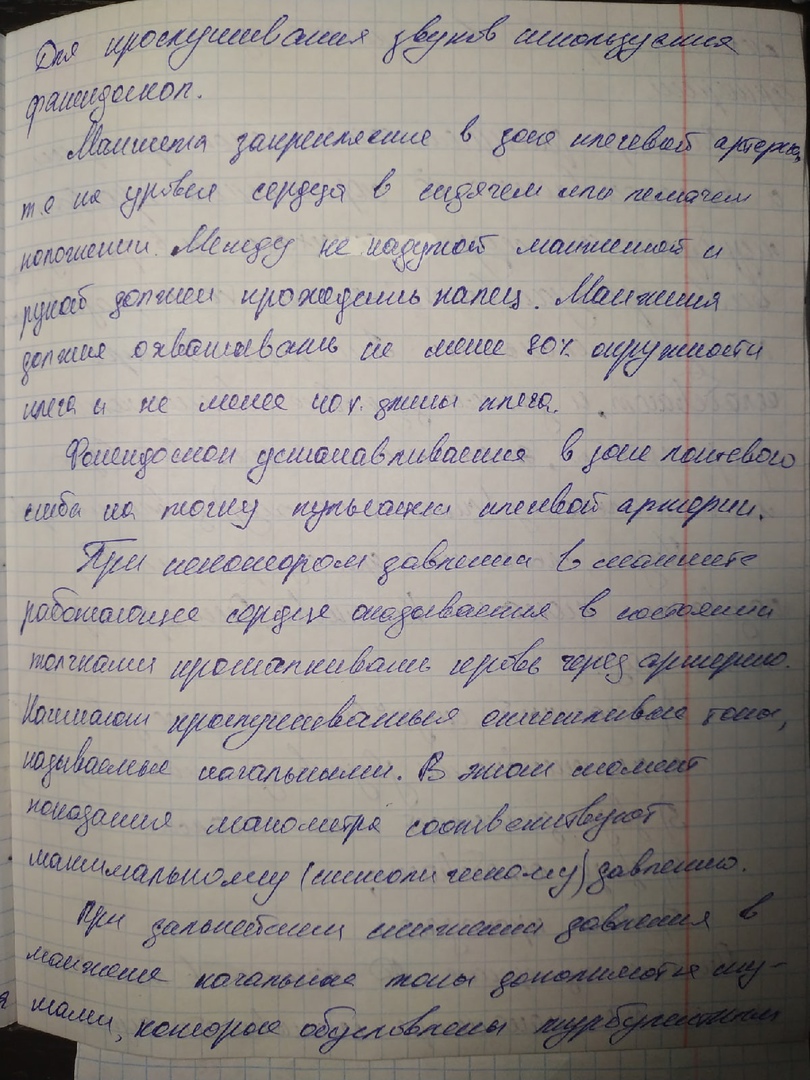 Для прослушивания звуков используется
фонендоскоп.
Манжета закрепляется в зоне плечевой артерии,
т.е на уровне сердца в сидячем или лежачем
положении. Между не надутой манжетой и
рукой должен проходить палец. Манжета
должна охватывать не мене 80% окружности
плеча и не менее 40% длины плеча.
Фонендоскоп устанавливается в зоне локтевого
сгиба на точку пульсации плечевой артерии.
При некотором давлении в манжете
работающее сердце оказывается в состоянии
толчками проталкивать кровь через артерию.
Начинают прослушиваться отчетливые тоны,
называемые начальными. В этот момент
показания манометра соответствуют
максимальному (систолическому) давлению.
При дальнейшем снижении давления в
манжете начальные тоны дополняются шу-
мами, которые обусловлены турбулентным